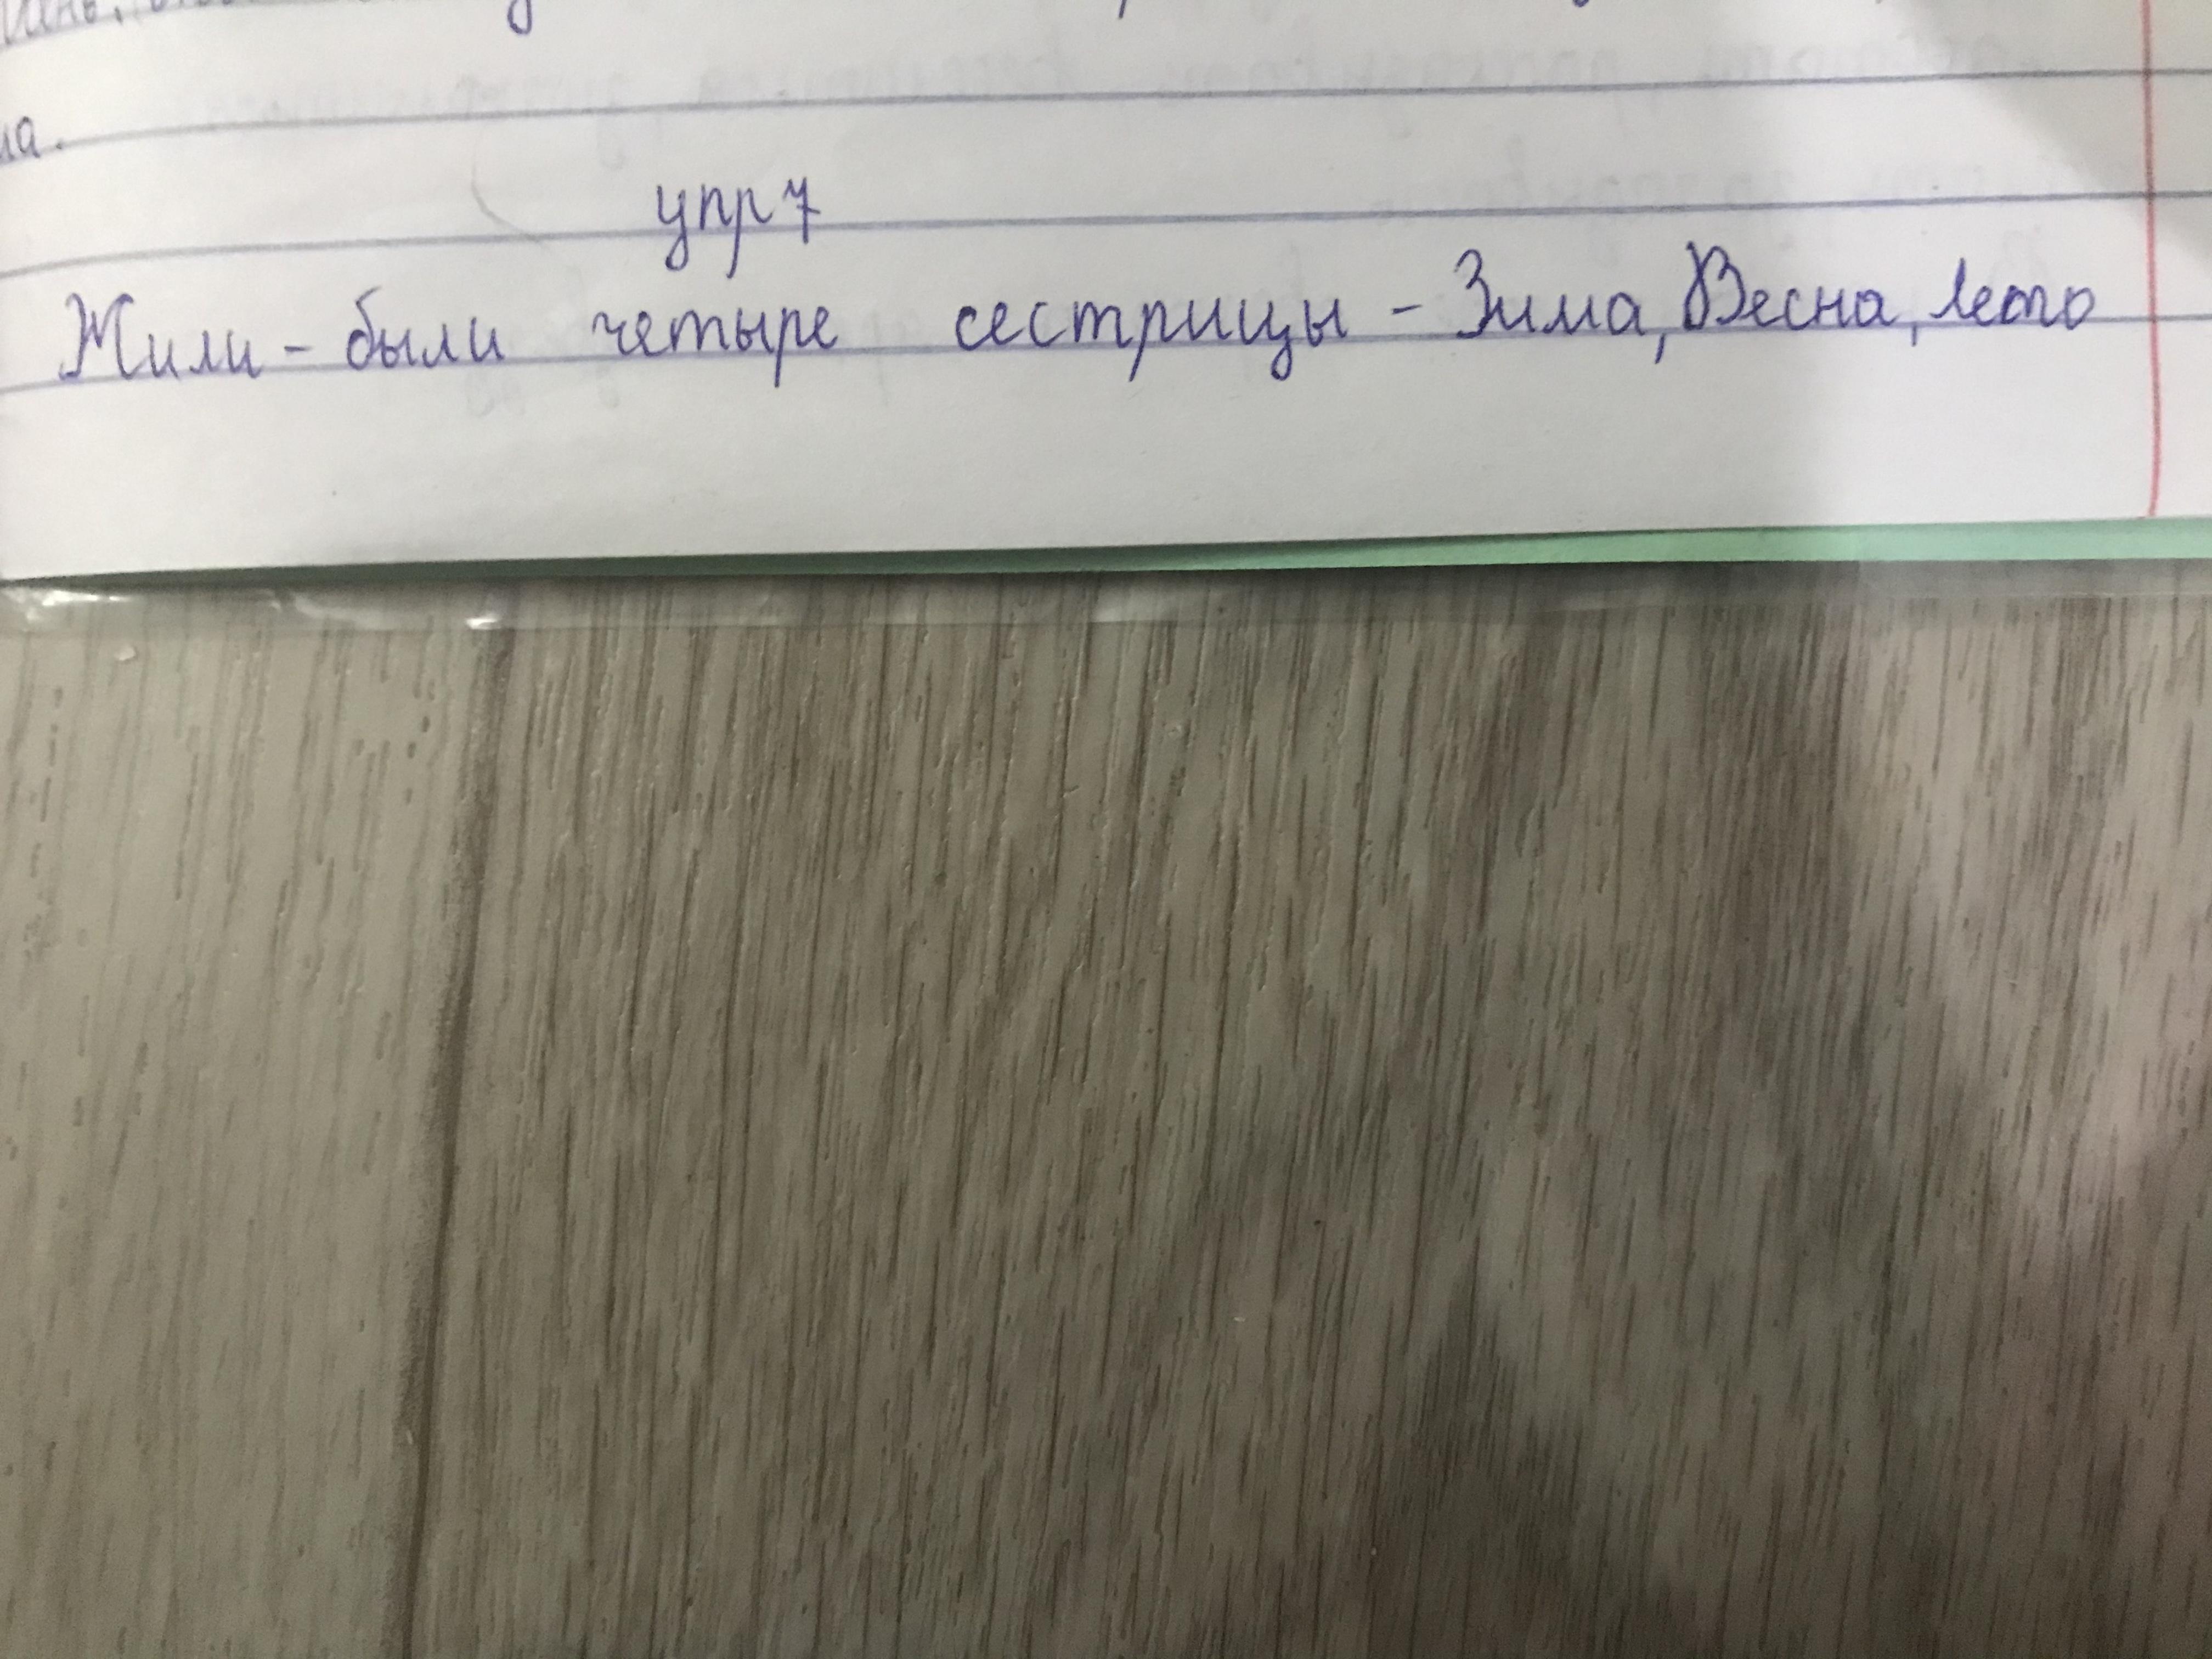 на.
упр 7
Жили-были четыре сестрицы - Зима, Весна, лето